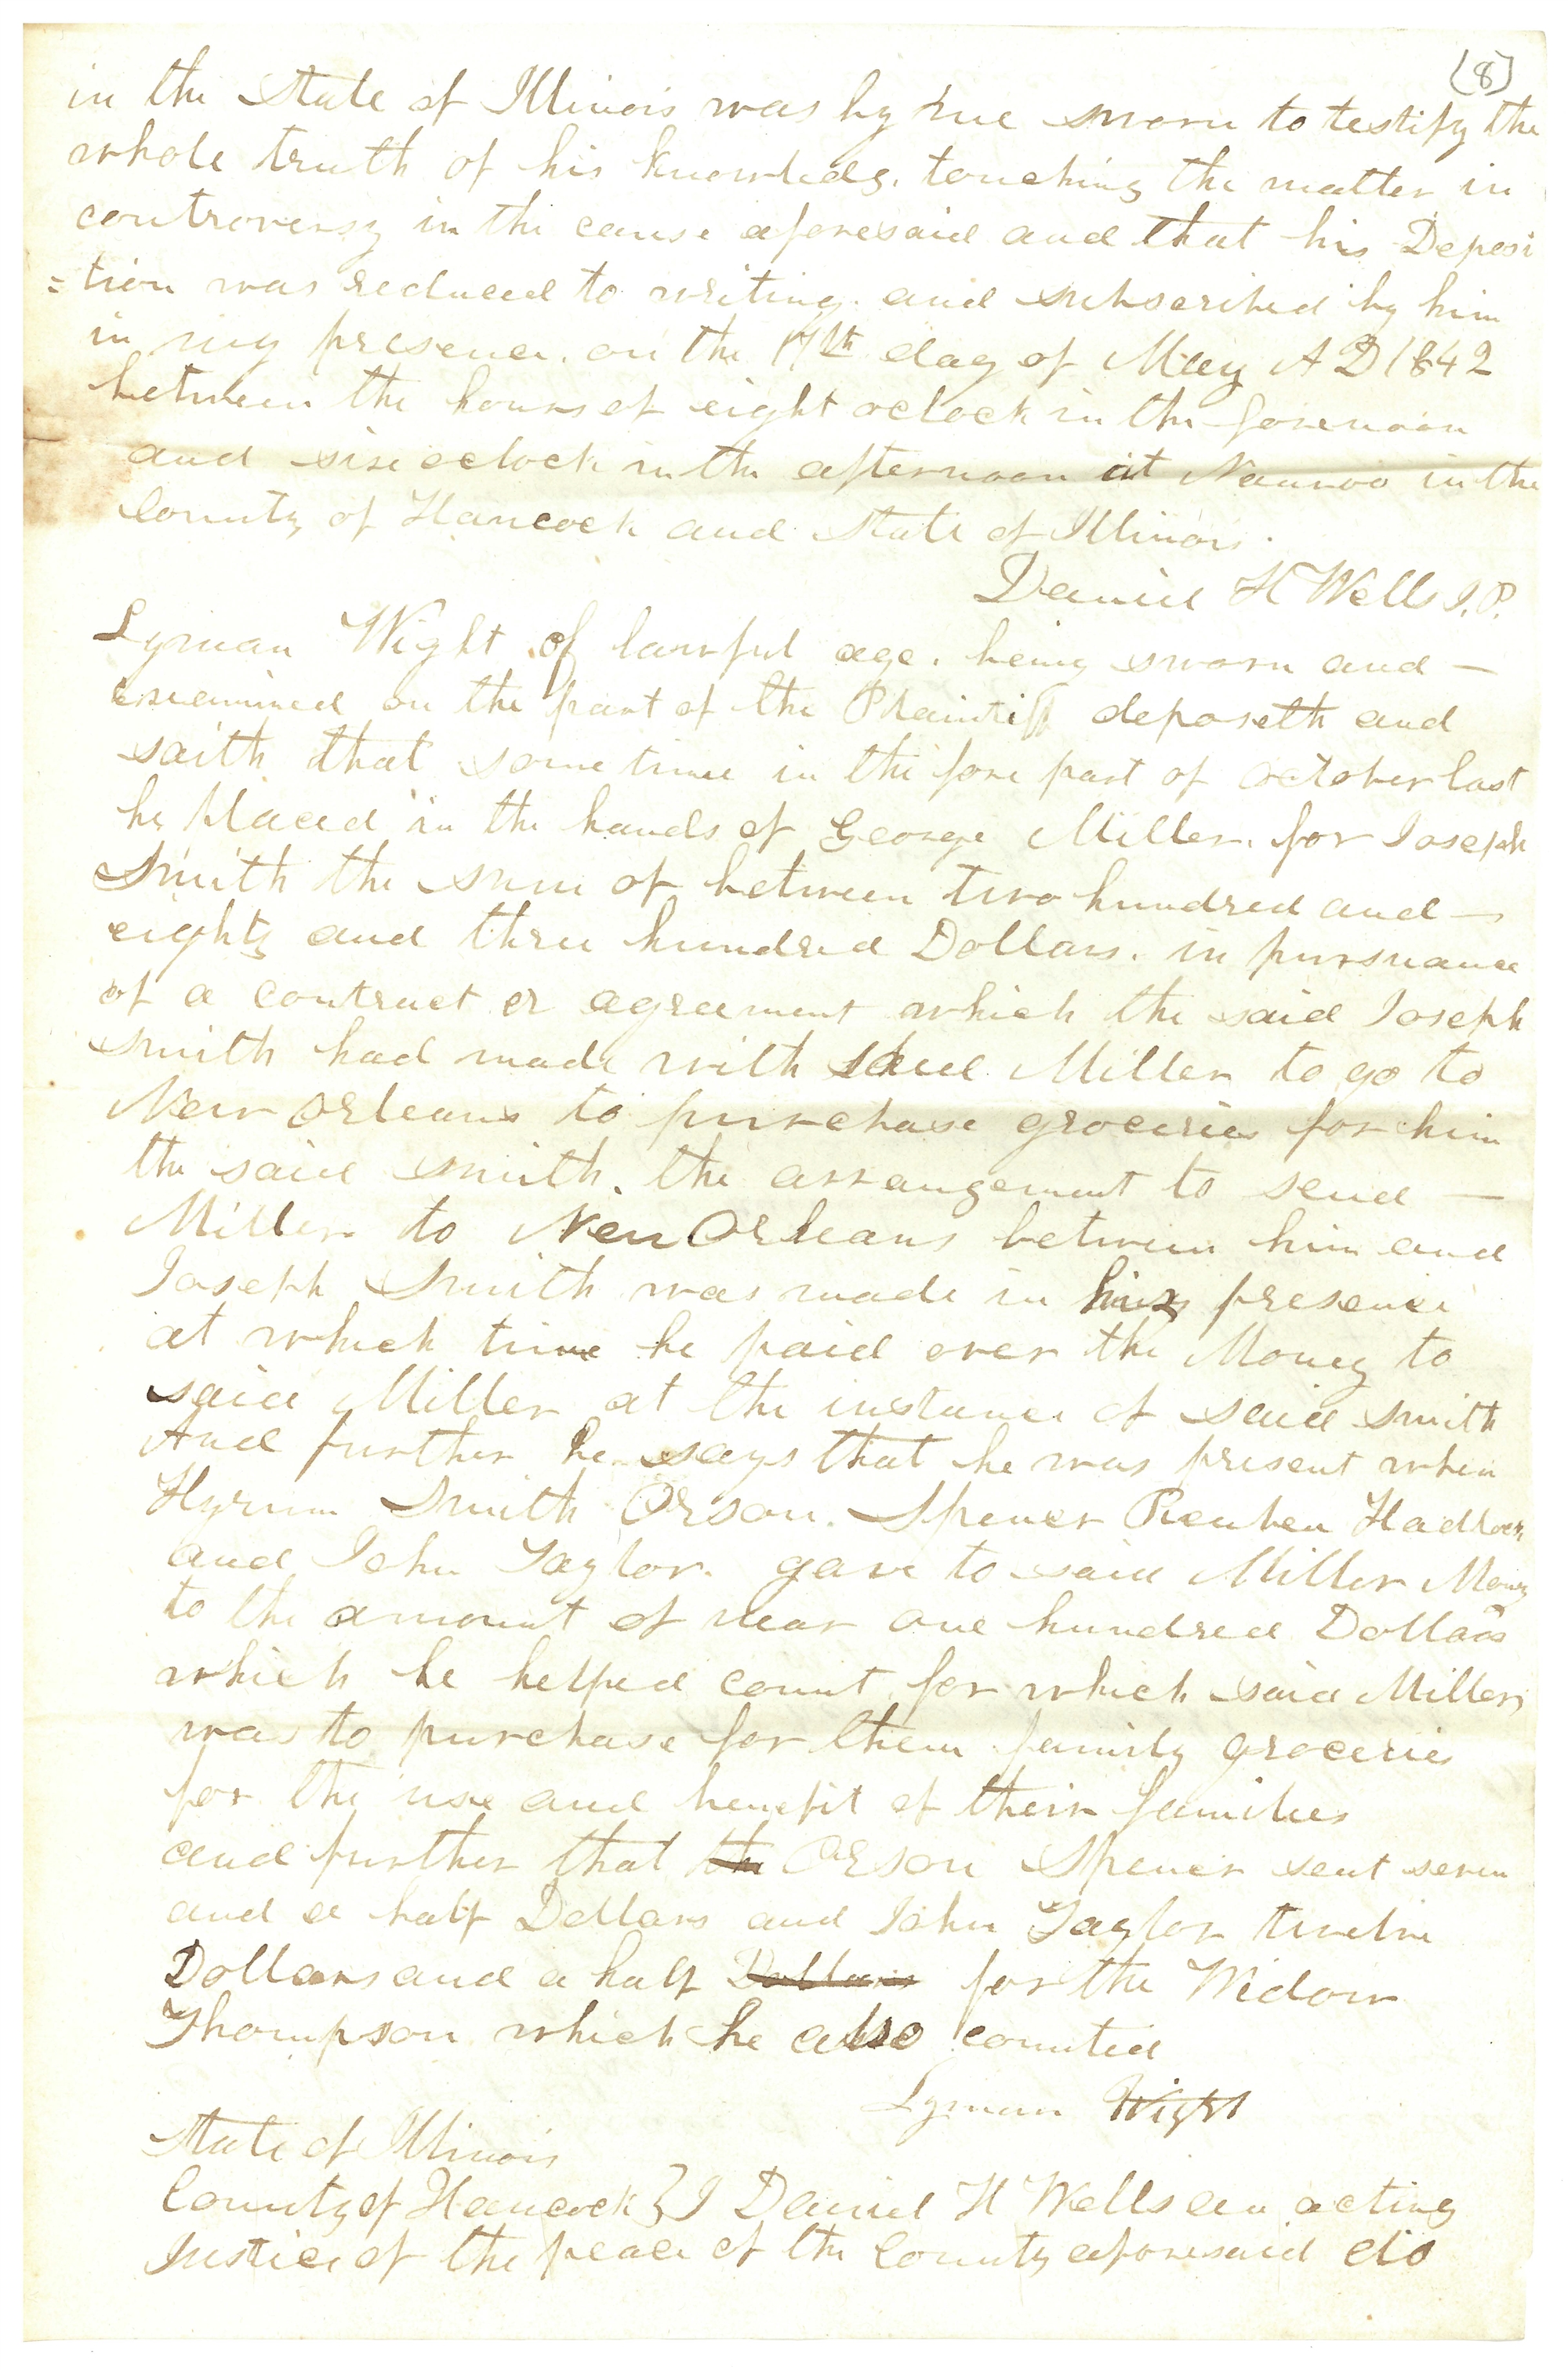 (8)
in the State of Illinois was by me sworn to testify the
whole truth of his knowledg. touching the matter in
controversy in the cause aforesaid and that his Deposi
=tion was reduced to writing. and subscribed by him
in my presence. on the 17th day of May A D 1842
between the hours of eight oclock in the forenoon
and six oclock in the afternoon at Nauvoo in the
County of Hancock and State of Illinois.
Daniel H Wells J.P.
Lyman Wight of lawful age. being sworn and —
examined on the part of the Plaintiff deposeth and
saith that some time in the fore part of october last
he placed in the hands of George Miller. for Joseph
Smith the sum of between two hundred and —
eighty and three hundred Dollars. in pursuance
of a contract or agreement which the said Joseph
Smith had made with said Miller to go to
New Orleans to purchase groceries for him
the said Smith. the arrangement to send —
Miller to New Orleans between him and
Joseph Smith was made in his presence
at which time he paid over the Money to
said Miller at the instance of said Smith
And further he says that he was present when
Hyrum Smith Orson. Spencer Reuben Hadlock
and John Taylor. gave to said Miller Money
to the amount of near one hundred Dollars
which he helped count for which said Miller
was to purchase for them family groceries
for the use and benefit of their families
and further that the Orson Spencer sent seven
and a half Dollars and John Taylor twelve
Dollars and a half Dollars for the Widow
Thompson which he also counted
Lyman Wight
State of Illinois
County of Hancock } I Daniel H Wells an acting
Justice of the peace of the County aforesaid do